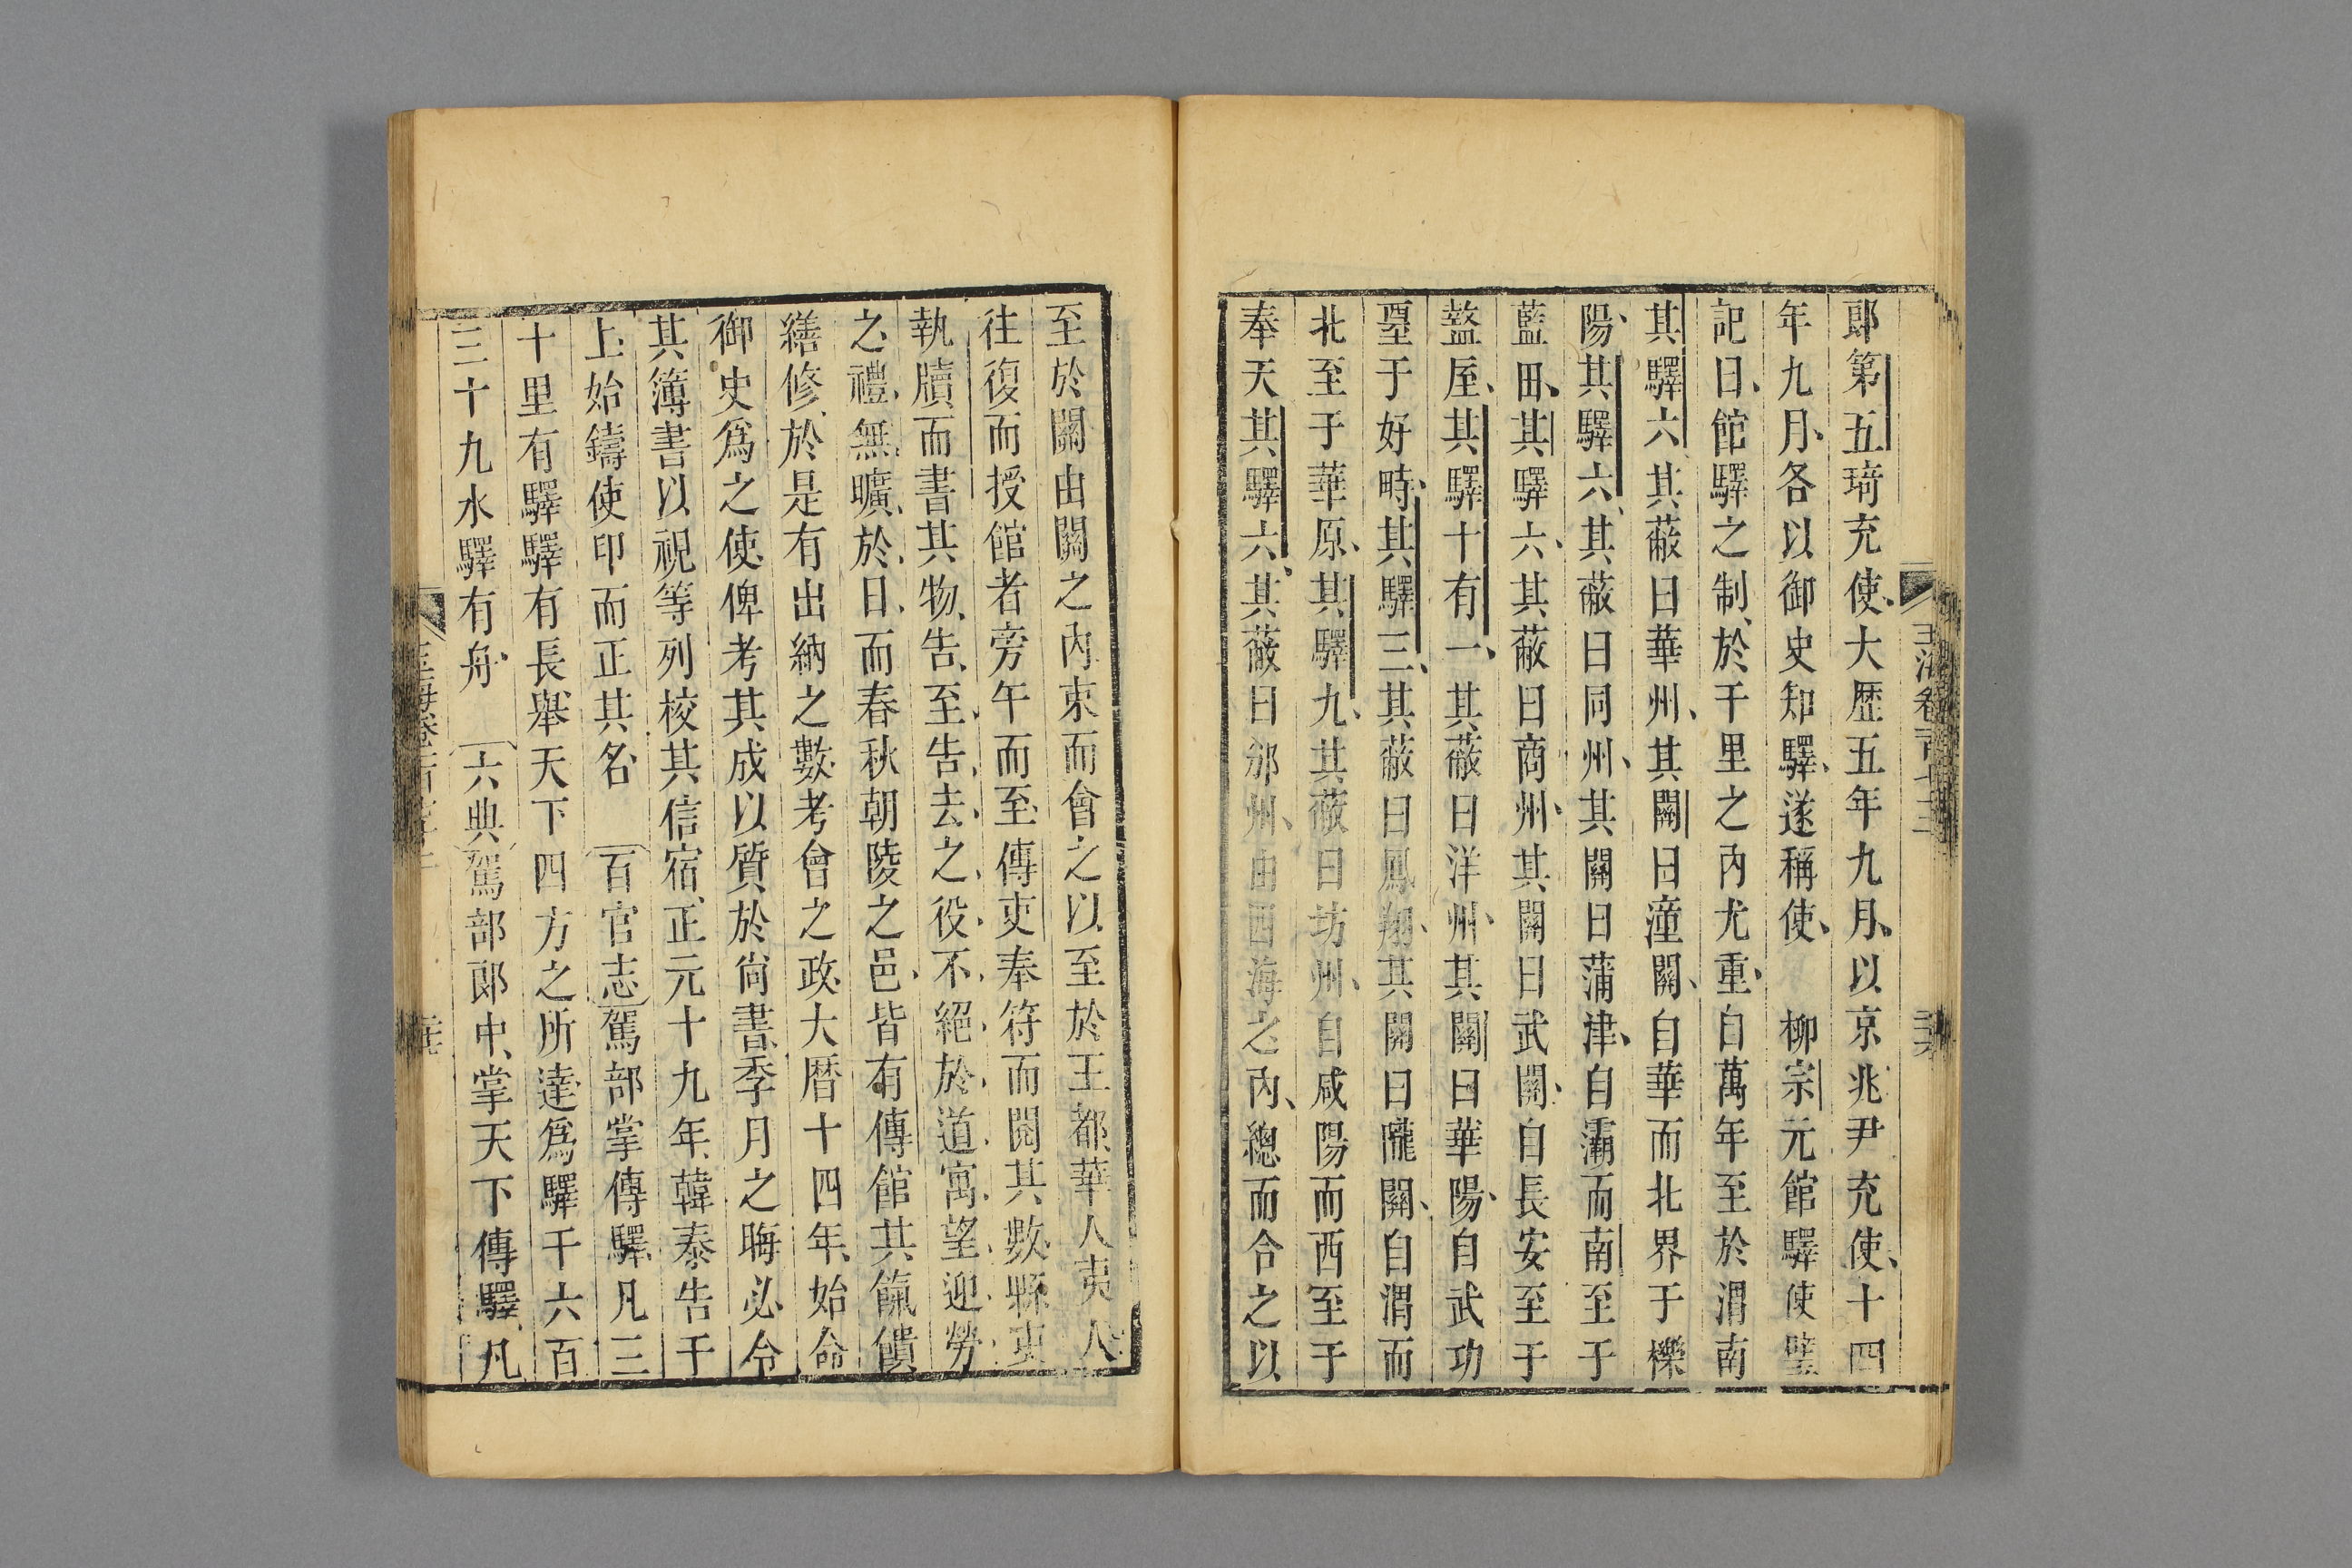 郎第五琦充使大歷五年九月以京兆尹充使十四
年九月各以御史知驛遂稱使　柳宗元館驛使壁
記曰館驛之制於千里之內尤重自萬年至於渭南
其驛六其蔽曰華州其關曰潼關自華而北界于櫟
陽其驛六其蔽曰同州其關曰蒲津自灞而南至于
藍田其驛六其蔽曰商州其關曰武關自長安至于
盩厔其驛十有一其蔽曰洋州其關曰華陽自武功
墾于好畤其驛三其蔽曰鳳翔其關曰隴關自渭而
北至于華原其驛九其蔽曰坊州自咸陽而西至于
奉天其驛六其蔽曰邠州由西海之內總而合之以
至於關由關之內束而會之以至於王都華人夷人
往復而授館者旁午而至傳吏奉符而閱其數縣吏
執牘而書其物告至告去之役不絕於道寓望迎勞
之禮無曠於日而春秋朝陵之邑皆有傳館其飢饋
繕修於是有出納之數考會之政大曆十四年始命
御史爲之使俾考其成以質於尙書季月之晦必令
其簿書以視等列校其信宿正元十九年韓泰告于
上始鑄使印而正其名　百官志駕部掌傳驛凡三
十里有驛驛有長舉天下四方之所達爲驛千六百
三十九水驛有舟　六典駕部郎中掌天下傳驛凡